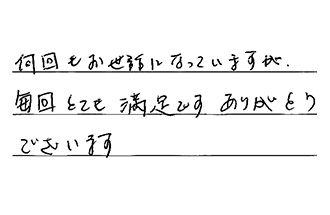 何回もお世話になっていますが、
毎回とても満足です ありがとう
ございます